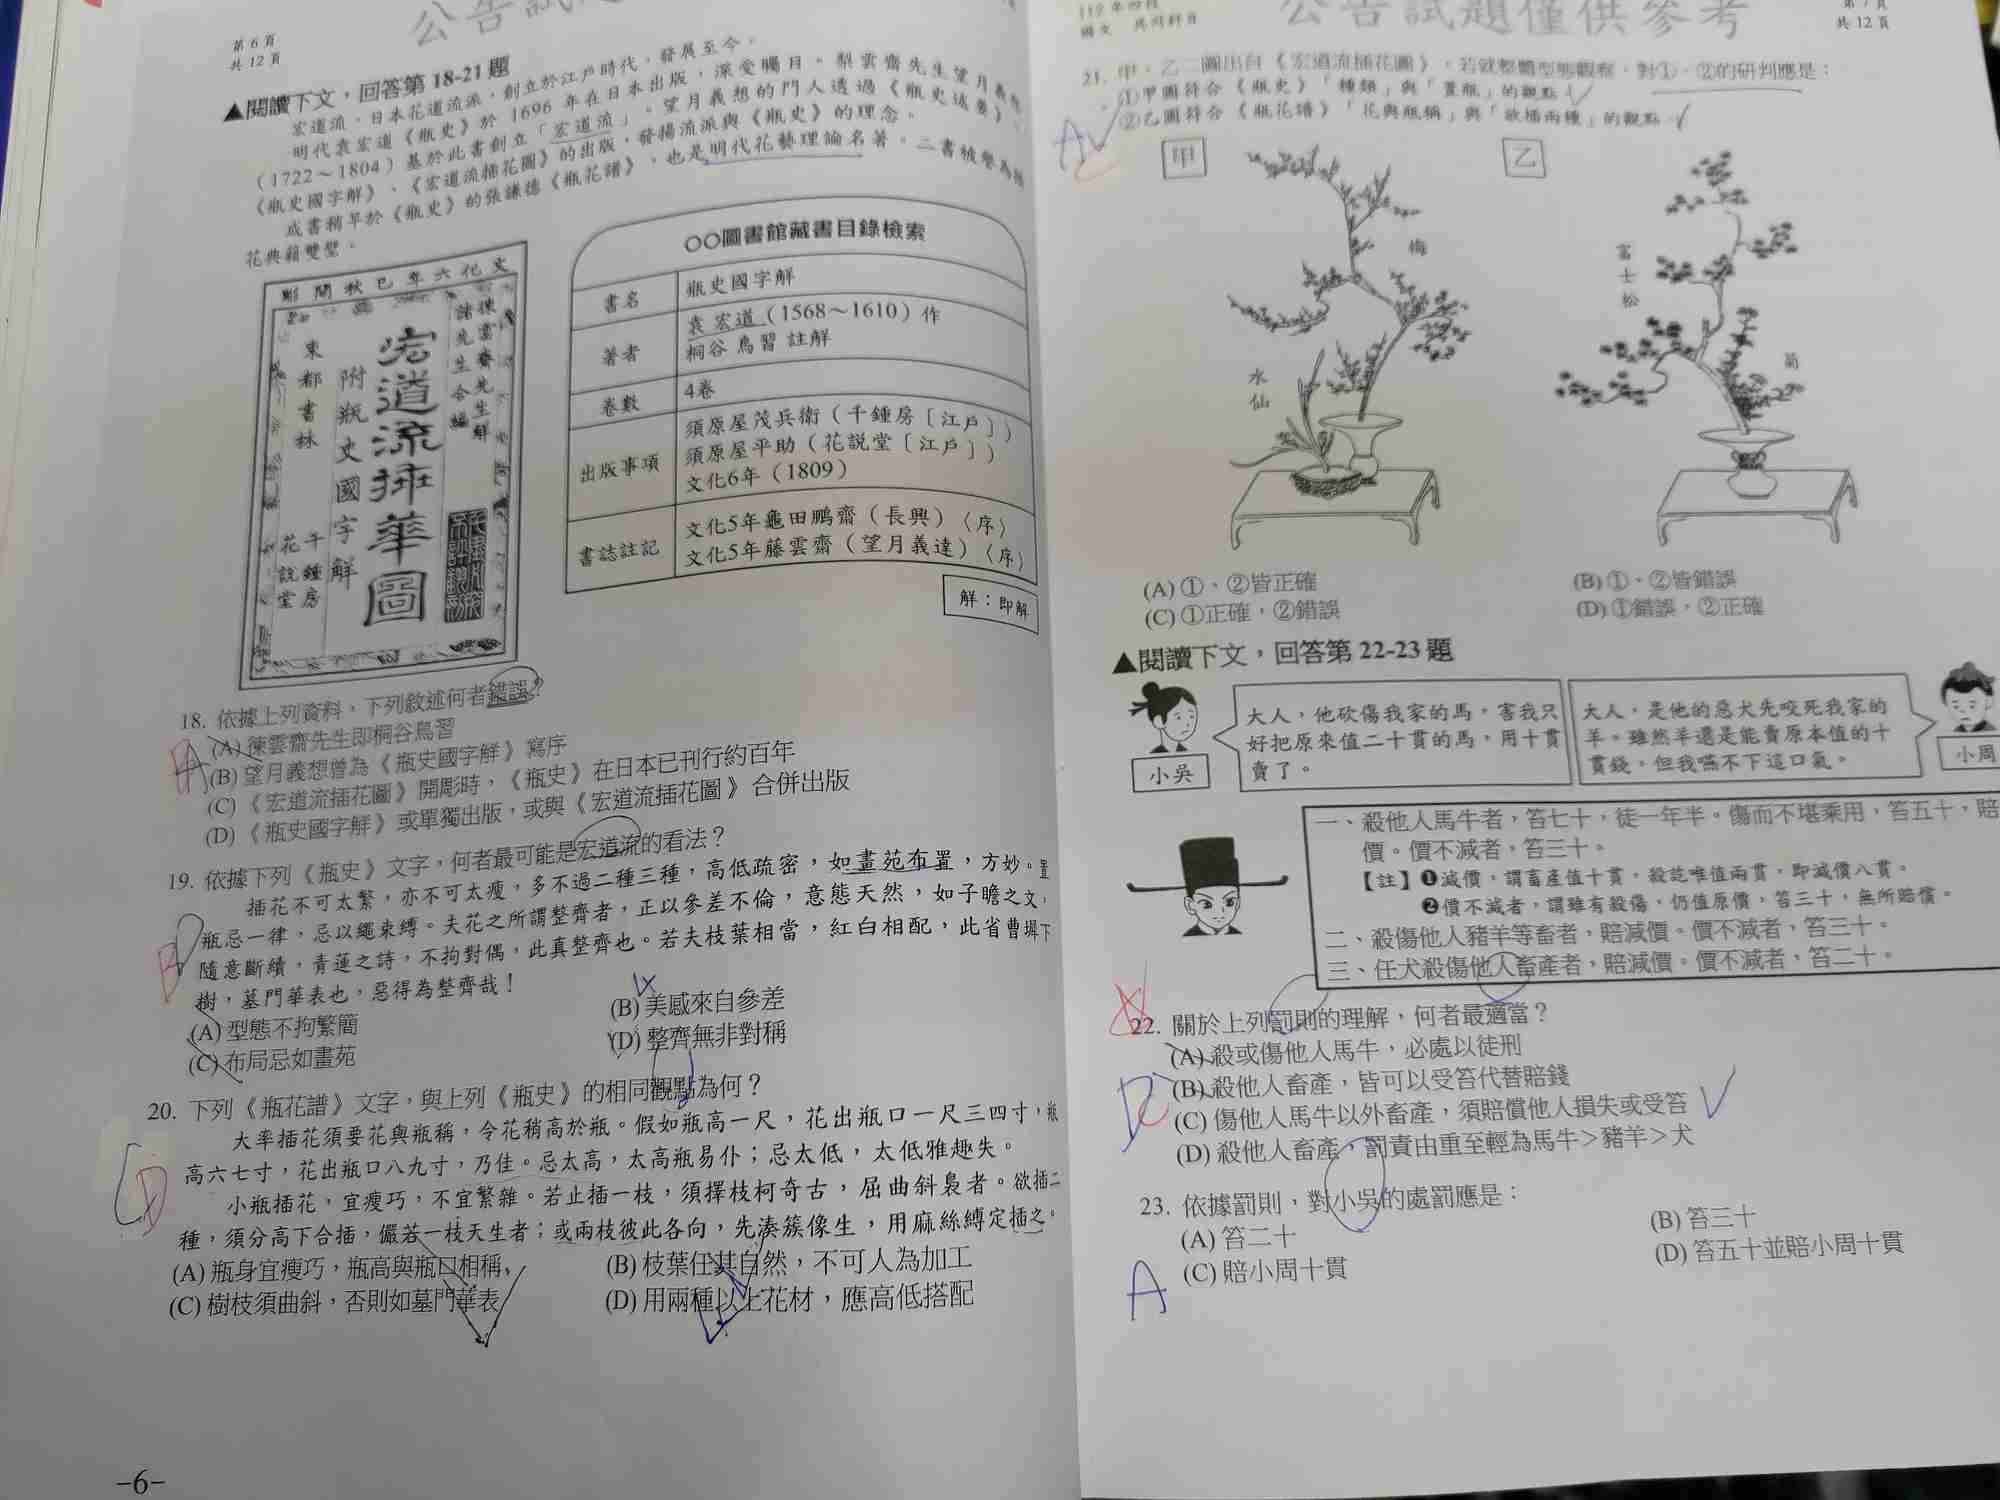 第6頁
共12頁
▲閱讀下文，回答第 18-21 題
宏道流，日本花道流派，創立於江戶時代，發展至今。
明代袁宏道《瓶史》於 1696 年在日本出版，深受矚目。梨雲齋先生望月義想
（1722～1804）基於此書創立「宏道流」。望月義想的門人透過《瓶史述要》、
《瓶史國字解》、《宏道流插花圖》的出版，發揚流派與《瓶史》的理念。
成書稍早於《瓶史》的張謙德《瓶花譜》，也是明代花藝理論名著。二書被譽為插
花典籍雙璧。
宏道流插華圖
附瓶史國字解
東都書林
千鍾房
花說堂
○○圖書館藏書目錄檢索
書名 瓶史國字解
著者 袁 宏道（1568～1610）作
桐谷 鳥習 註解
卷數 4卷
出版事項 須原屋茂兵衛（千鍾房〔江戶〕）
須原屋平助（花說堂〔江戶〕）
文化6年（1809）
書誌註記 文化5年龜田鵬齋（長興）〈序〉
文化5年藤雲齋（望月義達）〈序〉
解：即解
18. 依據上列資料，下列敘述何者錯誤？
(A) 徠雲齋先生即桐谷鳥習
(B) 望月義想曾為《瓶史國字解》寫序
(C)《宏道流插花圖》開彫時，《瓶史》在日本已刊行約百年
(D)《瓶史國字解》或單獨出版，或與《宏道流插花圖》合併出版
19. 依據下列《瓶史》文字，何者最可能是宏道流的看法？
插花不可太繁，亦不可太瘦，多不過二種三種，高低疏密，如畫苑布置，方妙。置
瓶忌一律，忌以繩束縛。夫花之所謂整齊者，正以參差不倫，意態天然，如子瞻之文，
隨意斷續，青蓮之詩，不拘對偶，此真整齊也。若夫枝葉相當，紅白相配，此省曹墀下
樹，墓門華表也，惡得為整齊哉！
(A) 型態不拘繁簡
(B) 美感來自參差
(C) 布局忌如畫苑
(D) 整齊無非對稱
20. 下列《瓶花譜》文字，與上列《瓶史》的相同觀點為何？
大率插花須要花與瓶稱，令花稍高於瓶。假如瓶高一尺，花出瓶口一尺三四寸，瓶
高六七寸，花出瓶口八九寸，乃佳。忌太高，太高瓶易仆；忌太低，太低雅趣失。
小瓶插花，宜瘦巧，不宜繁雜。若止插一枝，須擇枝柯奇古，屈曲斜裊者。欲插二
種，須分高下合插，儼若一枝天生者；或兩枝彼此各向，先湊簇像生，用麻絲縛定插之。
(A) 瓶身宜瘦巧，瓶高與瓶口相稱
(B) 枝葉任其自然，不可人為加工
(C) 樹枝須曲斜，否則如墓門華表
(D) 用兩種以上花材，應高低搭配
-6-
公告試題僅供參考
110 年四技
國文 共同科目
第 7 頁
共 12 頁
21. 甲、乙二圖出自《宏道流插花圖》，若就整體型態觀察，對①、②的研判應是：
①甲圖符合《瓶史》「種類」與「置瓶」的觀點
②乙圖符合《瓶花譜》「花與瓶稱」與「欲插兩種」的觀點
甲
乙
梅
水仙
富士松
菊
(A) ①、②皆正確
(B) ①、②皆錯誤
(C) ①正確，②錯誤
(D) ①錯誤，②正確
▲閱讀下文，回答第 22-23 題
大人，他砍傷我家的馬，害我只
好把原來值二十貫的馬，用十貫
賣了。
小吳
大人，是他的惡犬先咬死我家的
羊。雖然羊還是能賣原本值的十
貫錢，但我嚥不下這口氣。
小周
一、殺他人馬牛者，笞七十，徒一年半。傷而不堪乘用，笞五十，賠
價。價不減者，笞三十。
【註】❶減價，謂畜產值十貫，殺訖唯值兩貫，即減價八貫。
❷價不減者，謂雖有殺傷，仍值原價，笞三十，無所賠償。
二、殺傷他人豬羊等畜者，賠減價。價不減者，笞三十。
三、任犬殺傷他人畜產者，賠減價。價不減者，笞二十。
22. 關於上列罰則的理解，何者最適當？
(A) 殺或傷他人馬牛，必處以徒刑
(B) 殺他人畜產，皆可以受笞代替賠錢
(C) 傷他人馬牛以外畜產，須賠償他人損失或受笞
(D) 殺他人畜產，罰責由重至輕為馬牛＞豬羊＞犬
23. 依據罰則，對小吳的處罰應是：
(A) 笞二十
(B) 笞三十
(C) 賠小周十貫
(D) 笞五十並賠小周十貫
A